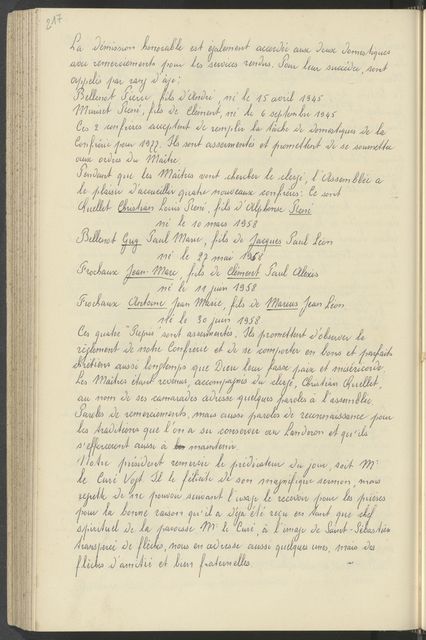 217
La démission honorable est également accordée aux deux domestiques
avec remerciements pour les services rendus. Pour leur succéder, sont
appelés par rang d'âge:
Bellenot Pierre, fils d'André, né le 15 avril 1945
Muriset René, fils de Clément, né le 6 septembre 1945
Ces 2 confrères acceptent de remplir la tâche de domestiques de la
Confrérie pour 1977. Ils sont assermentés et promettent de se soumettre
aux ordres du Maître.
Pendant que les Maîtres vont chercher le clergé, l'Assemblée a
le plaisir d'accueillir quatre nouveaux confrères: Ce sont
Quellet Christian Louis René, fils d'Alphonse René
né le 10 mars 1958
Bellenot Guy Paul Marie, fils de Jacques Paul Léon
né le 27 mai 1958
Frochaux Jean-Marc, fils de Clément Paul Alexis
né le 11 juin 1958
Frochaux Antoine Jean Marie, fils de Marcus Jean Léon
né le 30 juin 1958
Ces quatre "Piquis" sont assermentés. Ils promettent d'observer le
règlement de notre Confrérie et de se comporter en bons et parfaits
chrétiens aussi longtemps que Dieu leur fasse paix et miséricorde.
Les Maîtres étant revenus, accompagnés du clergé, Christian Quellet,
au nom de ses camarades adresse quelques paroles à l'assemblée
Paroles de remerciements, mais aussi paroles de reconnaissance pour
les traditions que l'on a su conserver au Landeron et qu'ils
s'efforceront aussi à maintenir.
Notre président remercie le prédicateur du jour, soit Mr
le Curé Vogt. Il le félicite de son magnifique sermon, mais
regrette de ne pouvoir suivant l'usage le recevoir pour les prières
pour la bonne raison qu'il a déjà été reçu en tant que chef
spirituel de la paroisse. Mr le Curé, à l'image de Saint-Sébastien
transpercé de flèches, nous en adresse aussi quelques unes, mais des
flèches d'amitié et bien fraternelles.